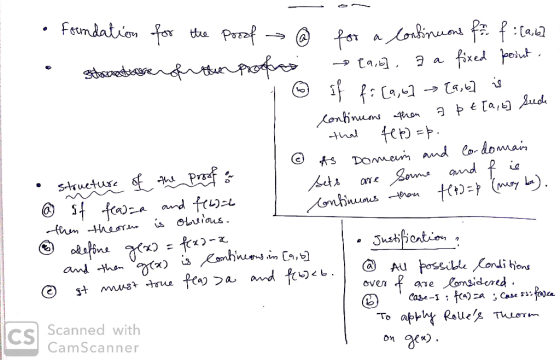 • Foundation for the Proof → (a) for a Continuous fn f:[a,b]
→ [a,b], ∃ a fixed point.
• structure of the proof
(b) If f:[a,b] → [a,b] is
continuous then ∃ p ∈ [a,b] such
that f(p)=p.
(c) As Domain and Co-domain
sets are Same and f is
Continuous then f(p)=p (may be).
• structure of the proof :
(a) If f(a)=a and f(b)=b
then theorem is obvious.
(b) define g(x) = f(x)-x
and then g(x) is Continuous in [a,b]
(c) It must true f(a)>a and f(b)<b.
• Justification :
(a) All possible Conditions
over f are Considered.
(b) case-I : f(a)=a ; Case II:
To apply Rolle's Theorem
on g(x).
CS Scanned with
CamScanner